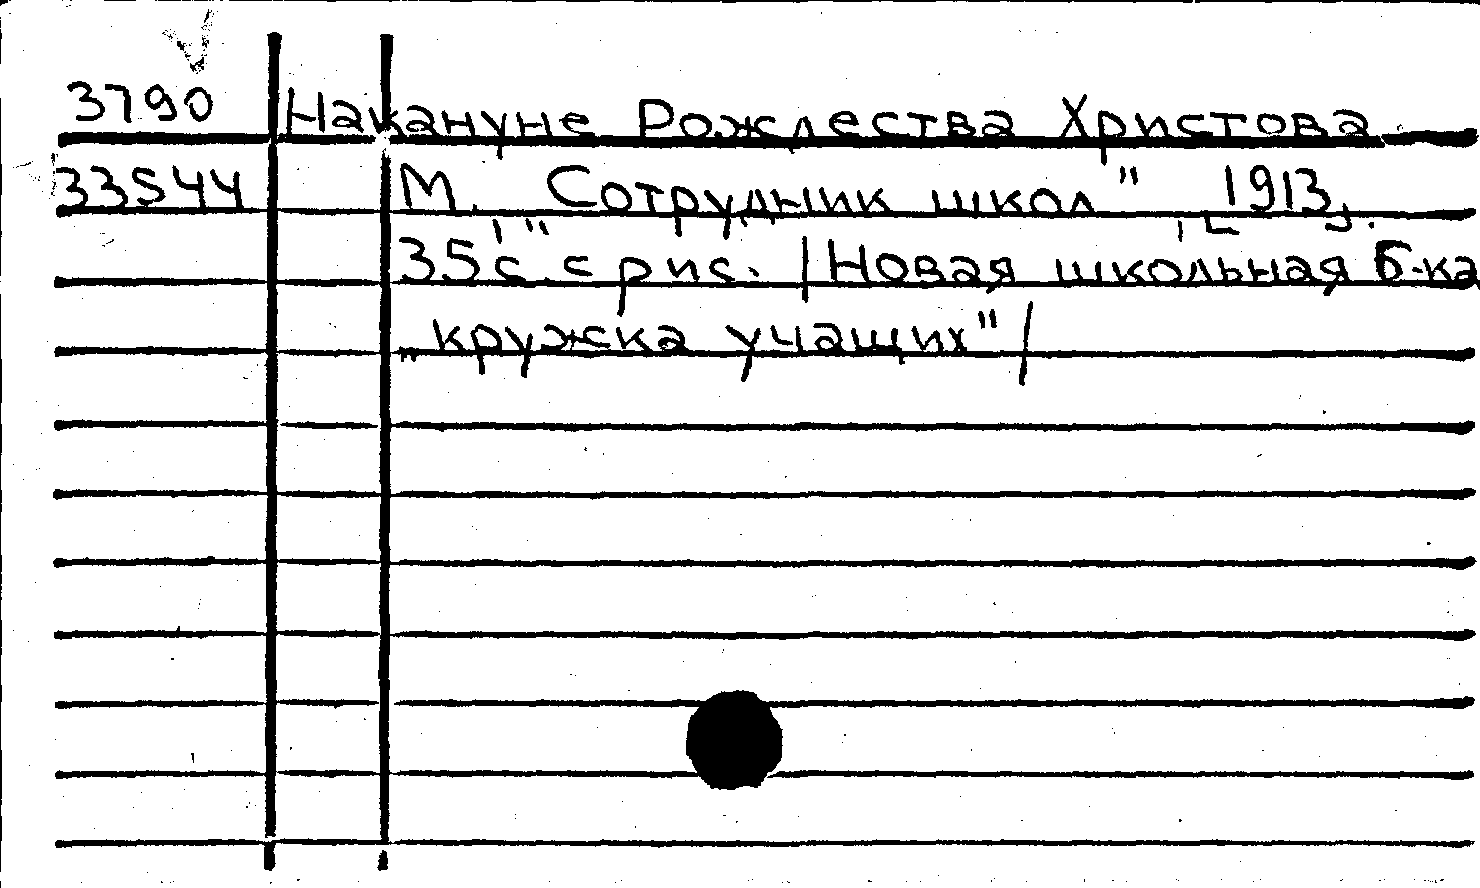 3790 Накануне Рождества Христова
33544 М. Сотрудник школ" 1913,
35 с. с рис. /Новая школьная б-ка
„кружка учащих"/